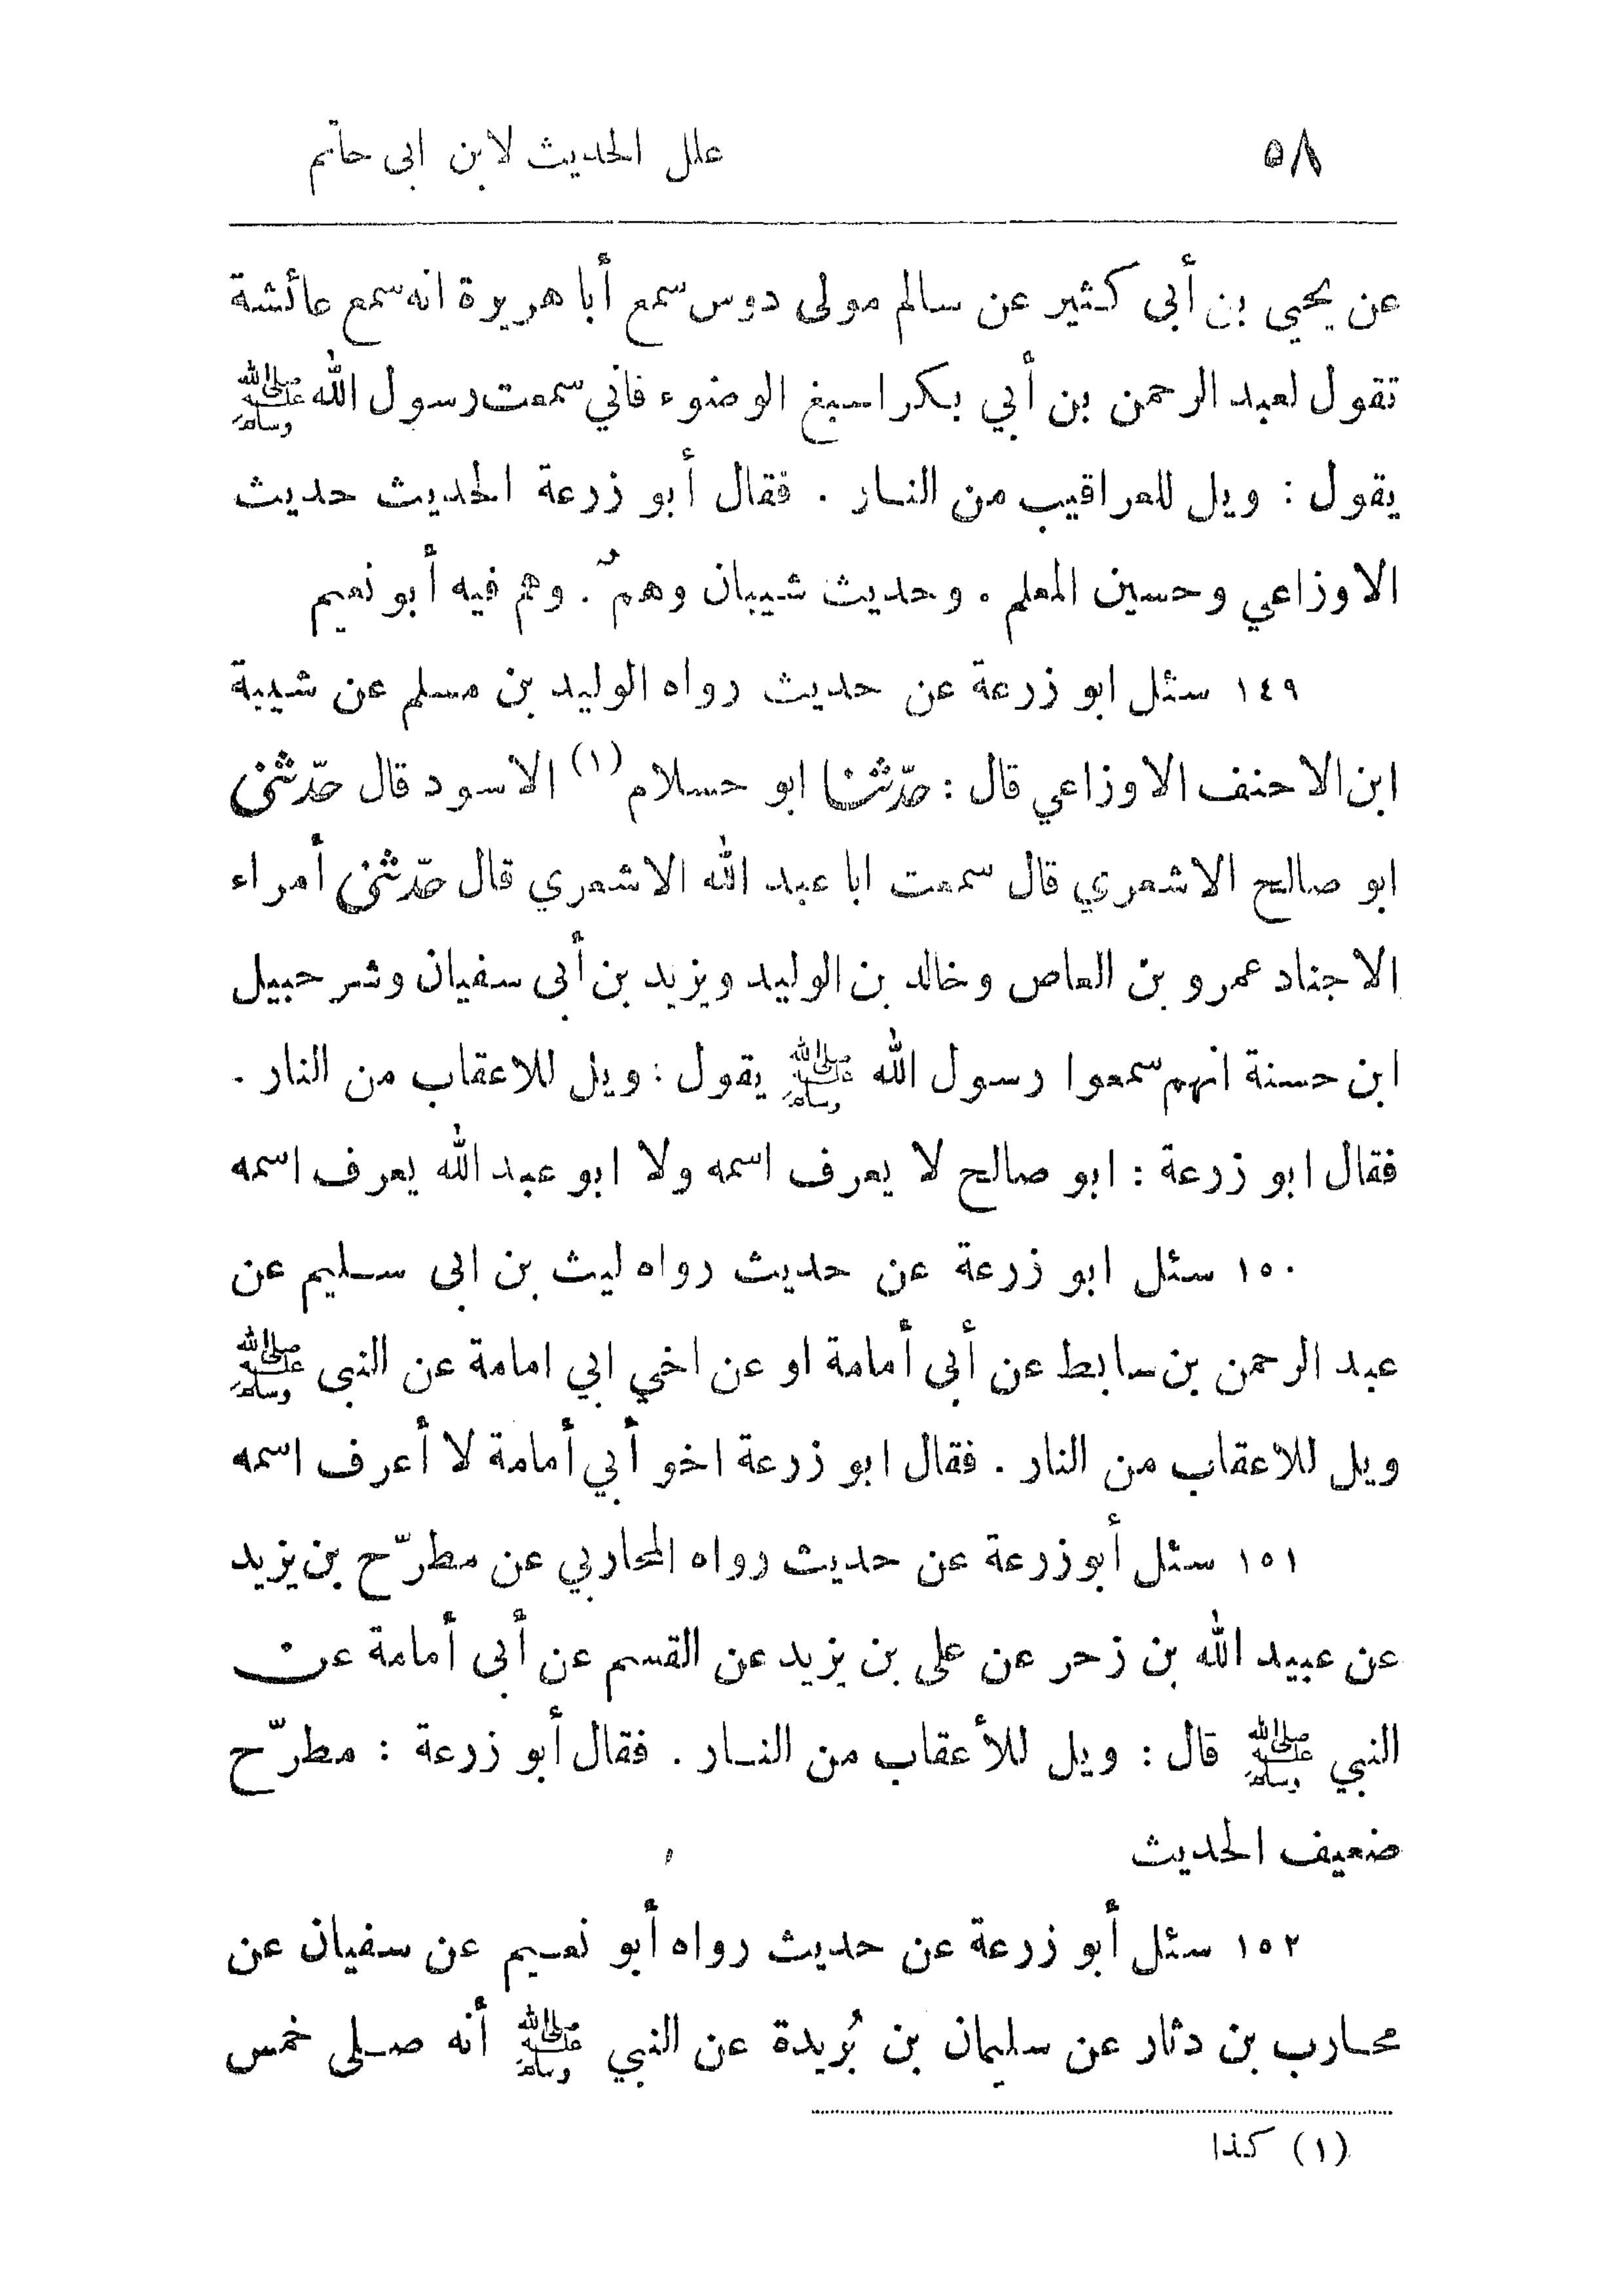 ٥٨ علل الحديث لابن ابى حاتم
عن يحيي بن أبى كثير عن سالم مولى دوس سمع أبا هريرة انه سمع عائشة
تقول لعبد الرحمن بن أبي بكر اسبغ الوضوء فاني سمعت رسول الله ﷺ
يقول : ويل للعراقيب من النار . فقال أبو زرعة الحديث حديث
الاوزاعي وحسين المعلم . وحديث شيبان وهمٌ . وهم فيه أبو نعيم
١٤٩ سئل ابو زرعة عن حديث رواه الوليد بن مسلم عن شيبة
ابن الاحنف الاوزاعي قال : حدّثنا ابو حسلام (١) الاسود قال حدّثنى
ابو صالح الاشعري قال سمعت ابا عبد الله الاشعري قال حدّثنى أمراء
الاجناد عمرو بن العاص وخالد بن الوليد ويزيد بن أبى سفيان وشرحبيل
ابن حسنة انهم سمعوا رسول الله ﷺ يقول : ويل للاعقاب من النار .
فقال ابو زرعة : ابو صالح لا يعرف اسمه ولا ابو عبد الله يعرف اسمه
١٥٠ سئل ابو زرعة عن حديث رواه ليث بن ابى سليم عن
عبد الرحمن بن سابط عن أبى أمامة او عن اخي ابي امامة عن النبى ﷺ
ويل للاعقاب من النار . فقال ابو زرعة اخو أبي أمامة لا أعرف اسمه
١٥١ سئل أبو زرعة عن حديث رواه المحاربي عن مطرّح بن يزيد
عن عبيد الله بن زحر عن على بن يزيد عن القسم عن أبى أمامة عن
النبي ﷺ قال : ويل للأعقاب من النار . فقال أبو زرعة : مطرّح
ضعيف الحديث
١٥٢ سئل أبو زرعة عن حديث رواه أبو نعيم عن سفيان عن
محارب بن دثار عن سليمان بن بُريدة عن النبي ﷺ أنه صلى خمس
(١) كذا